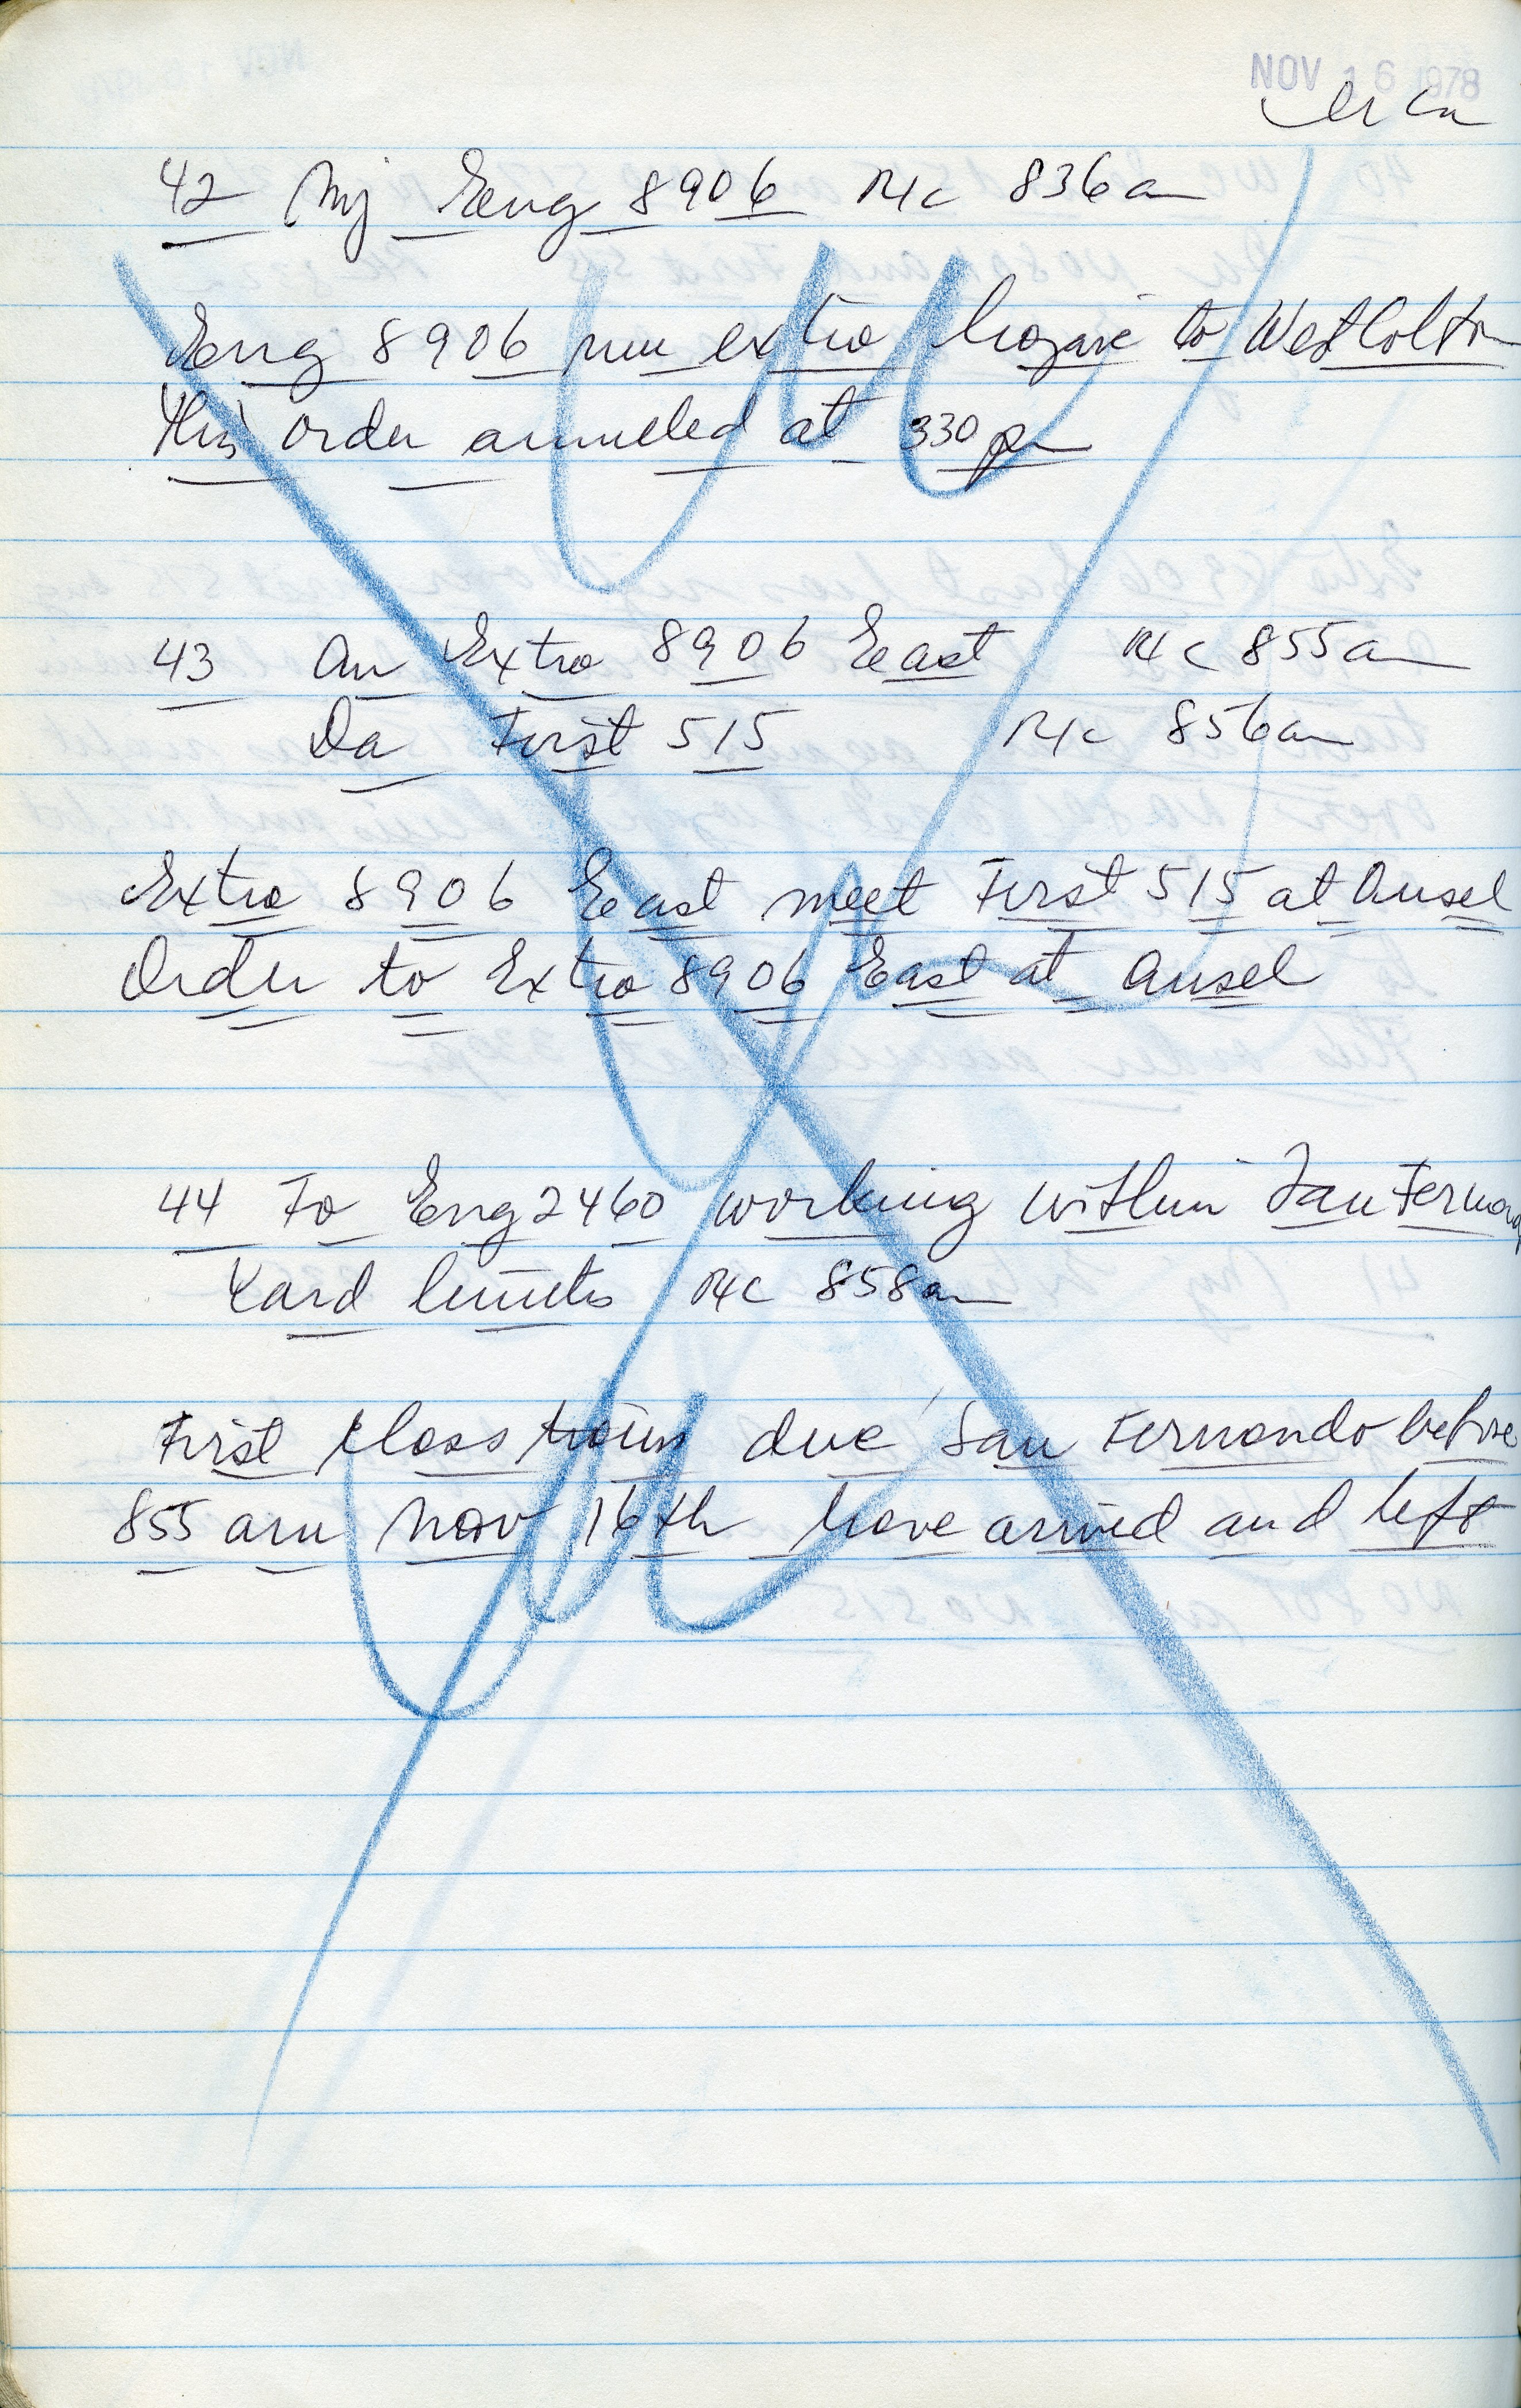 NOV 16 1978
42 Mj Eng 8906 RHC 836am
Eng 8906 run extra to West Colton
this order annulled at 330pm
43 An Extra 8906 East RHC 855am
Da First 515 RHC 856am
Extra 8906 East meet First 515 at Ansel
Order to Extra 8906 East at Ansel
44 To Eng 2460 working within San Fernando
Yard limits RHC 858am
First class trains due San Fernando before
855 am Nov 16th have arrived and left